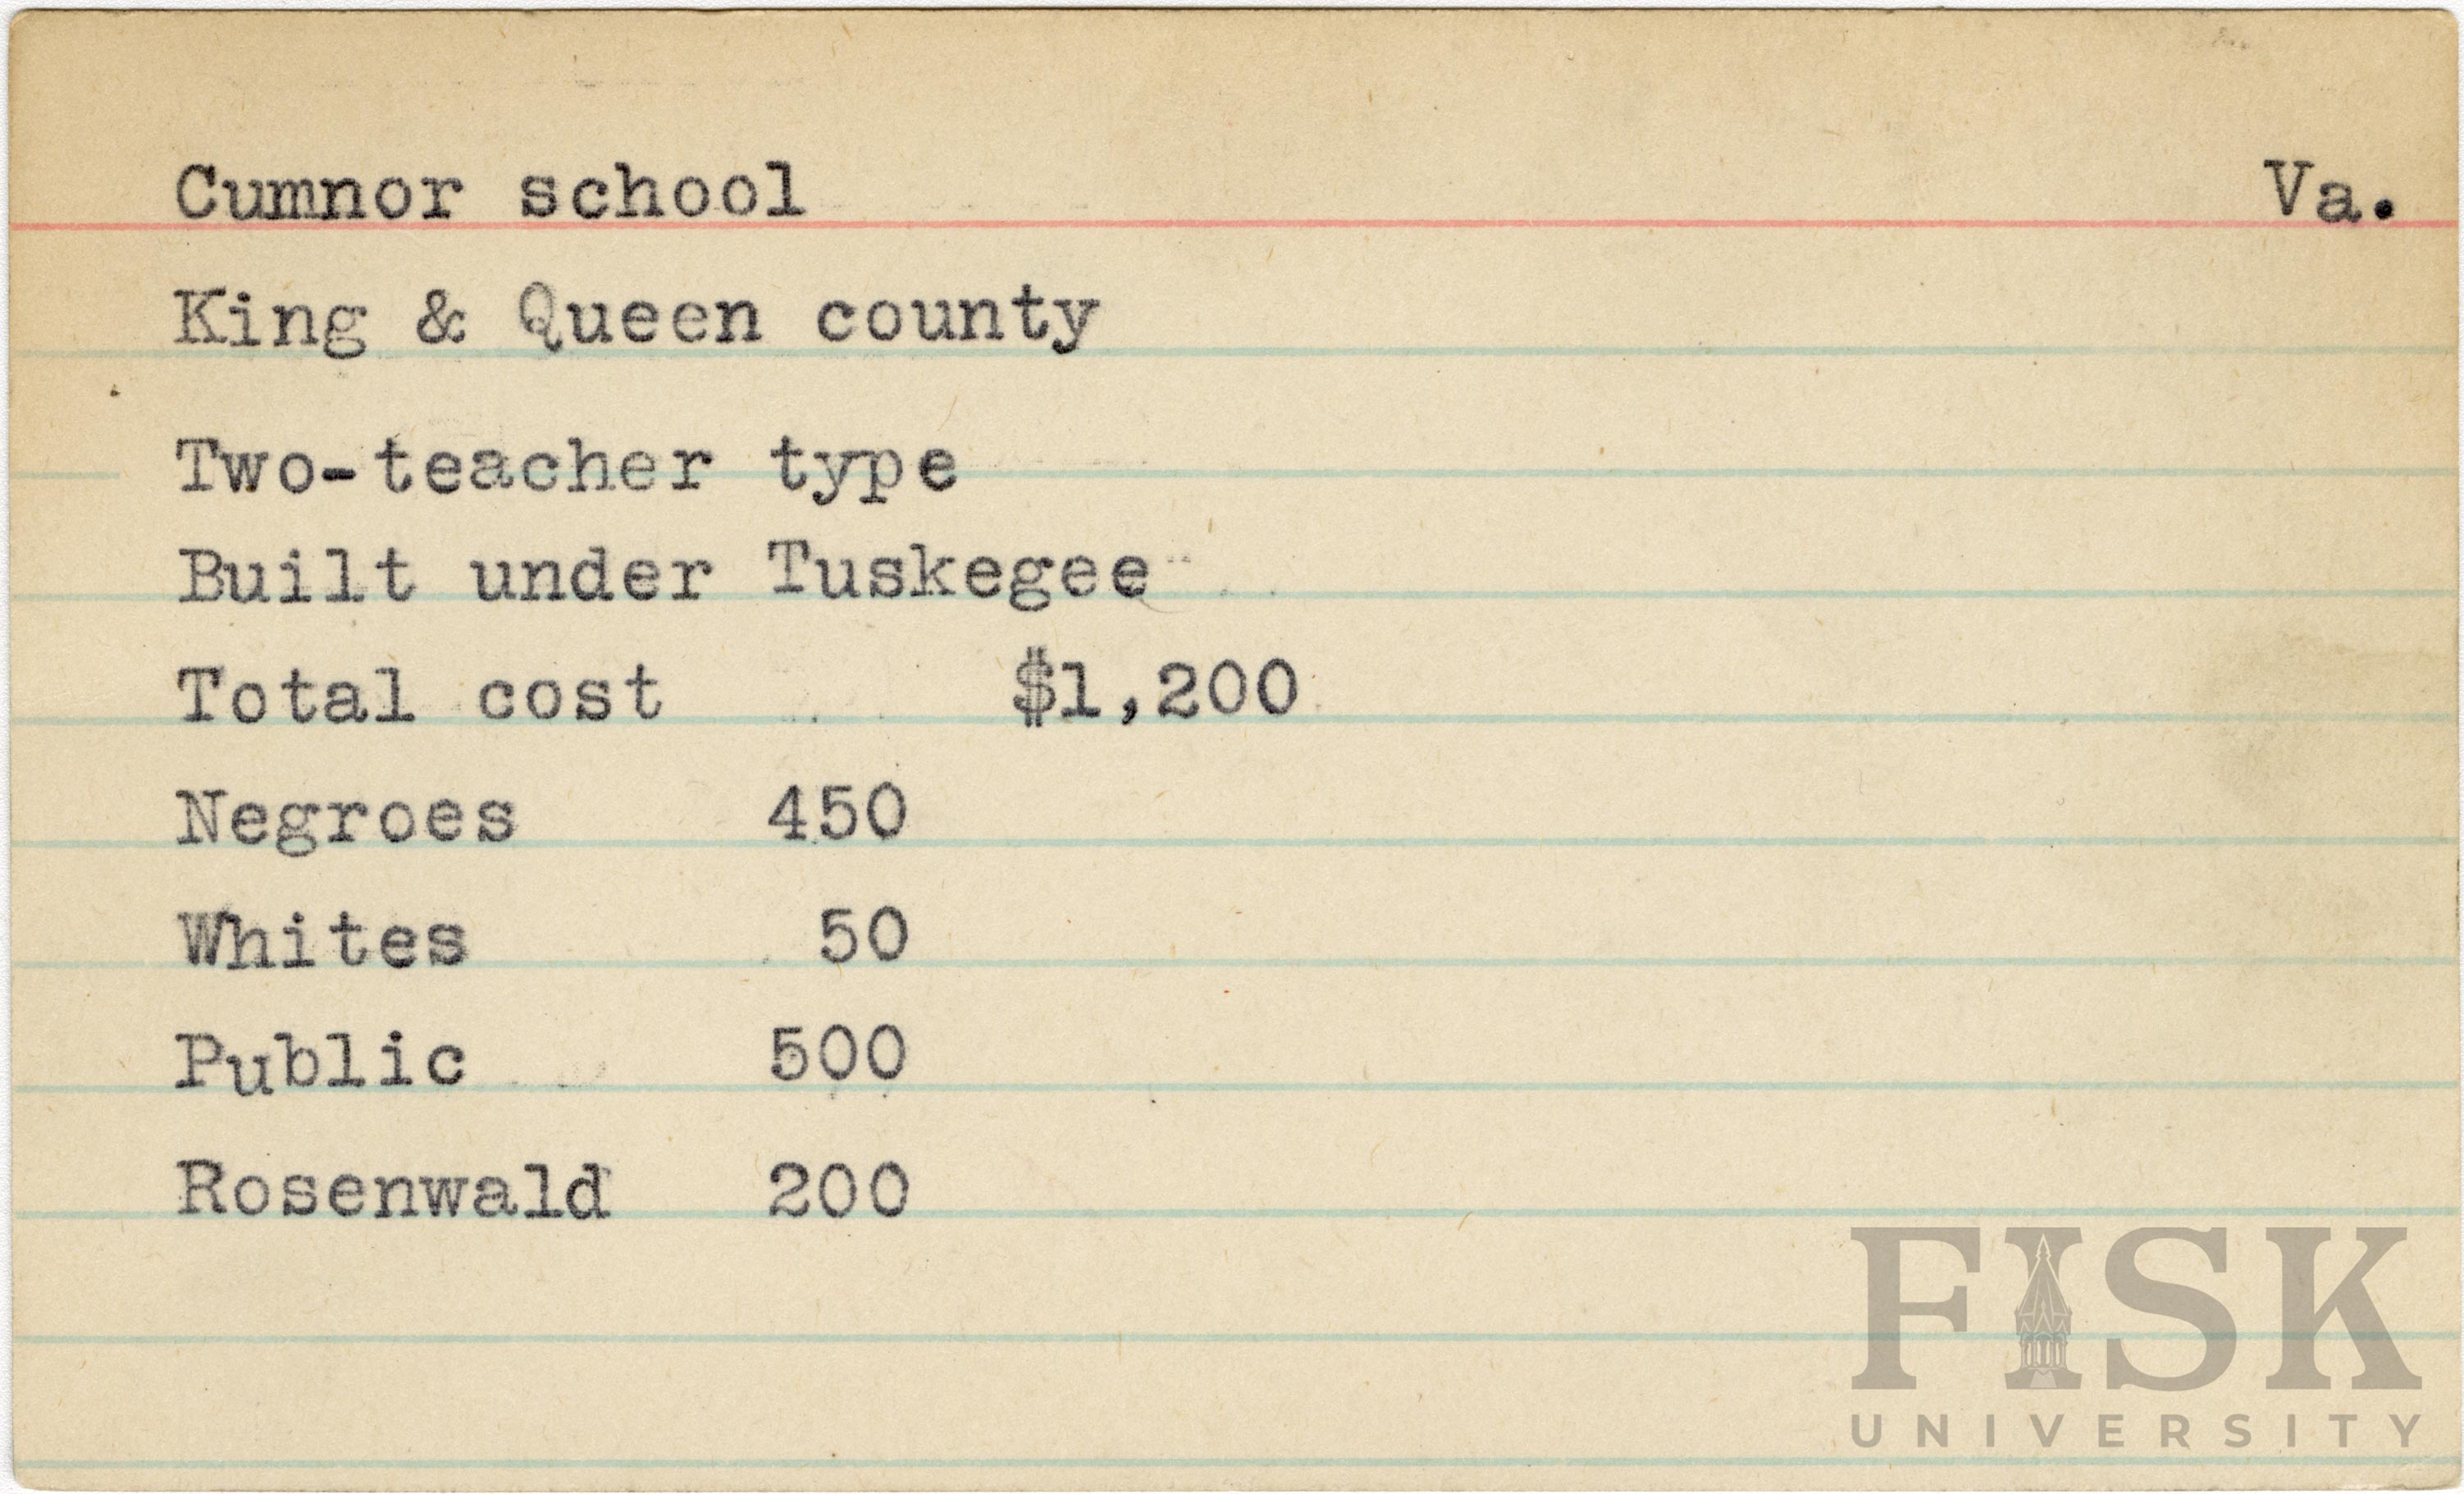 Cumnor school Va.
King & Queen county
Two-teacher type
Built under Tuskegee
Total cost $1,200
Negroes 450
Whites 50
Public 500
Rosenwald 200
FISK
UNIVERSITY